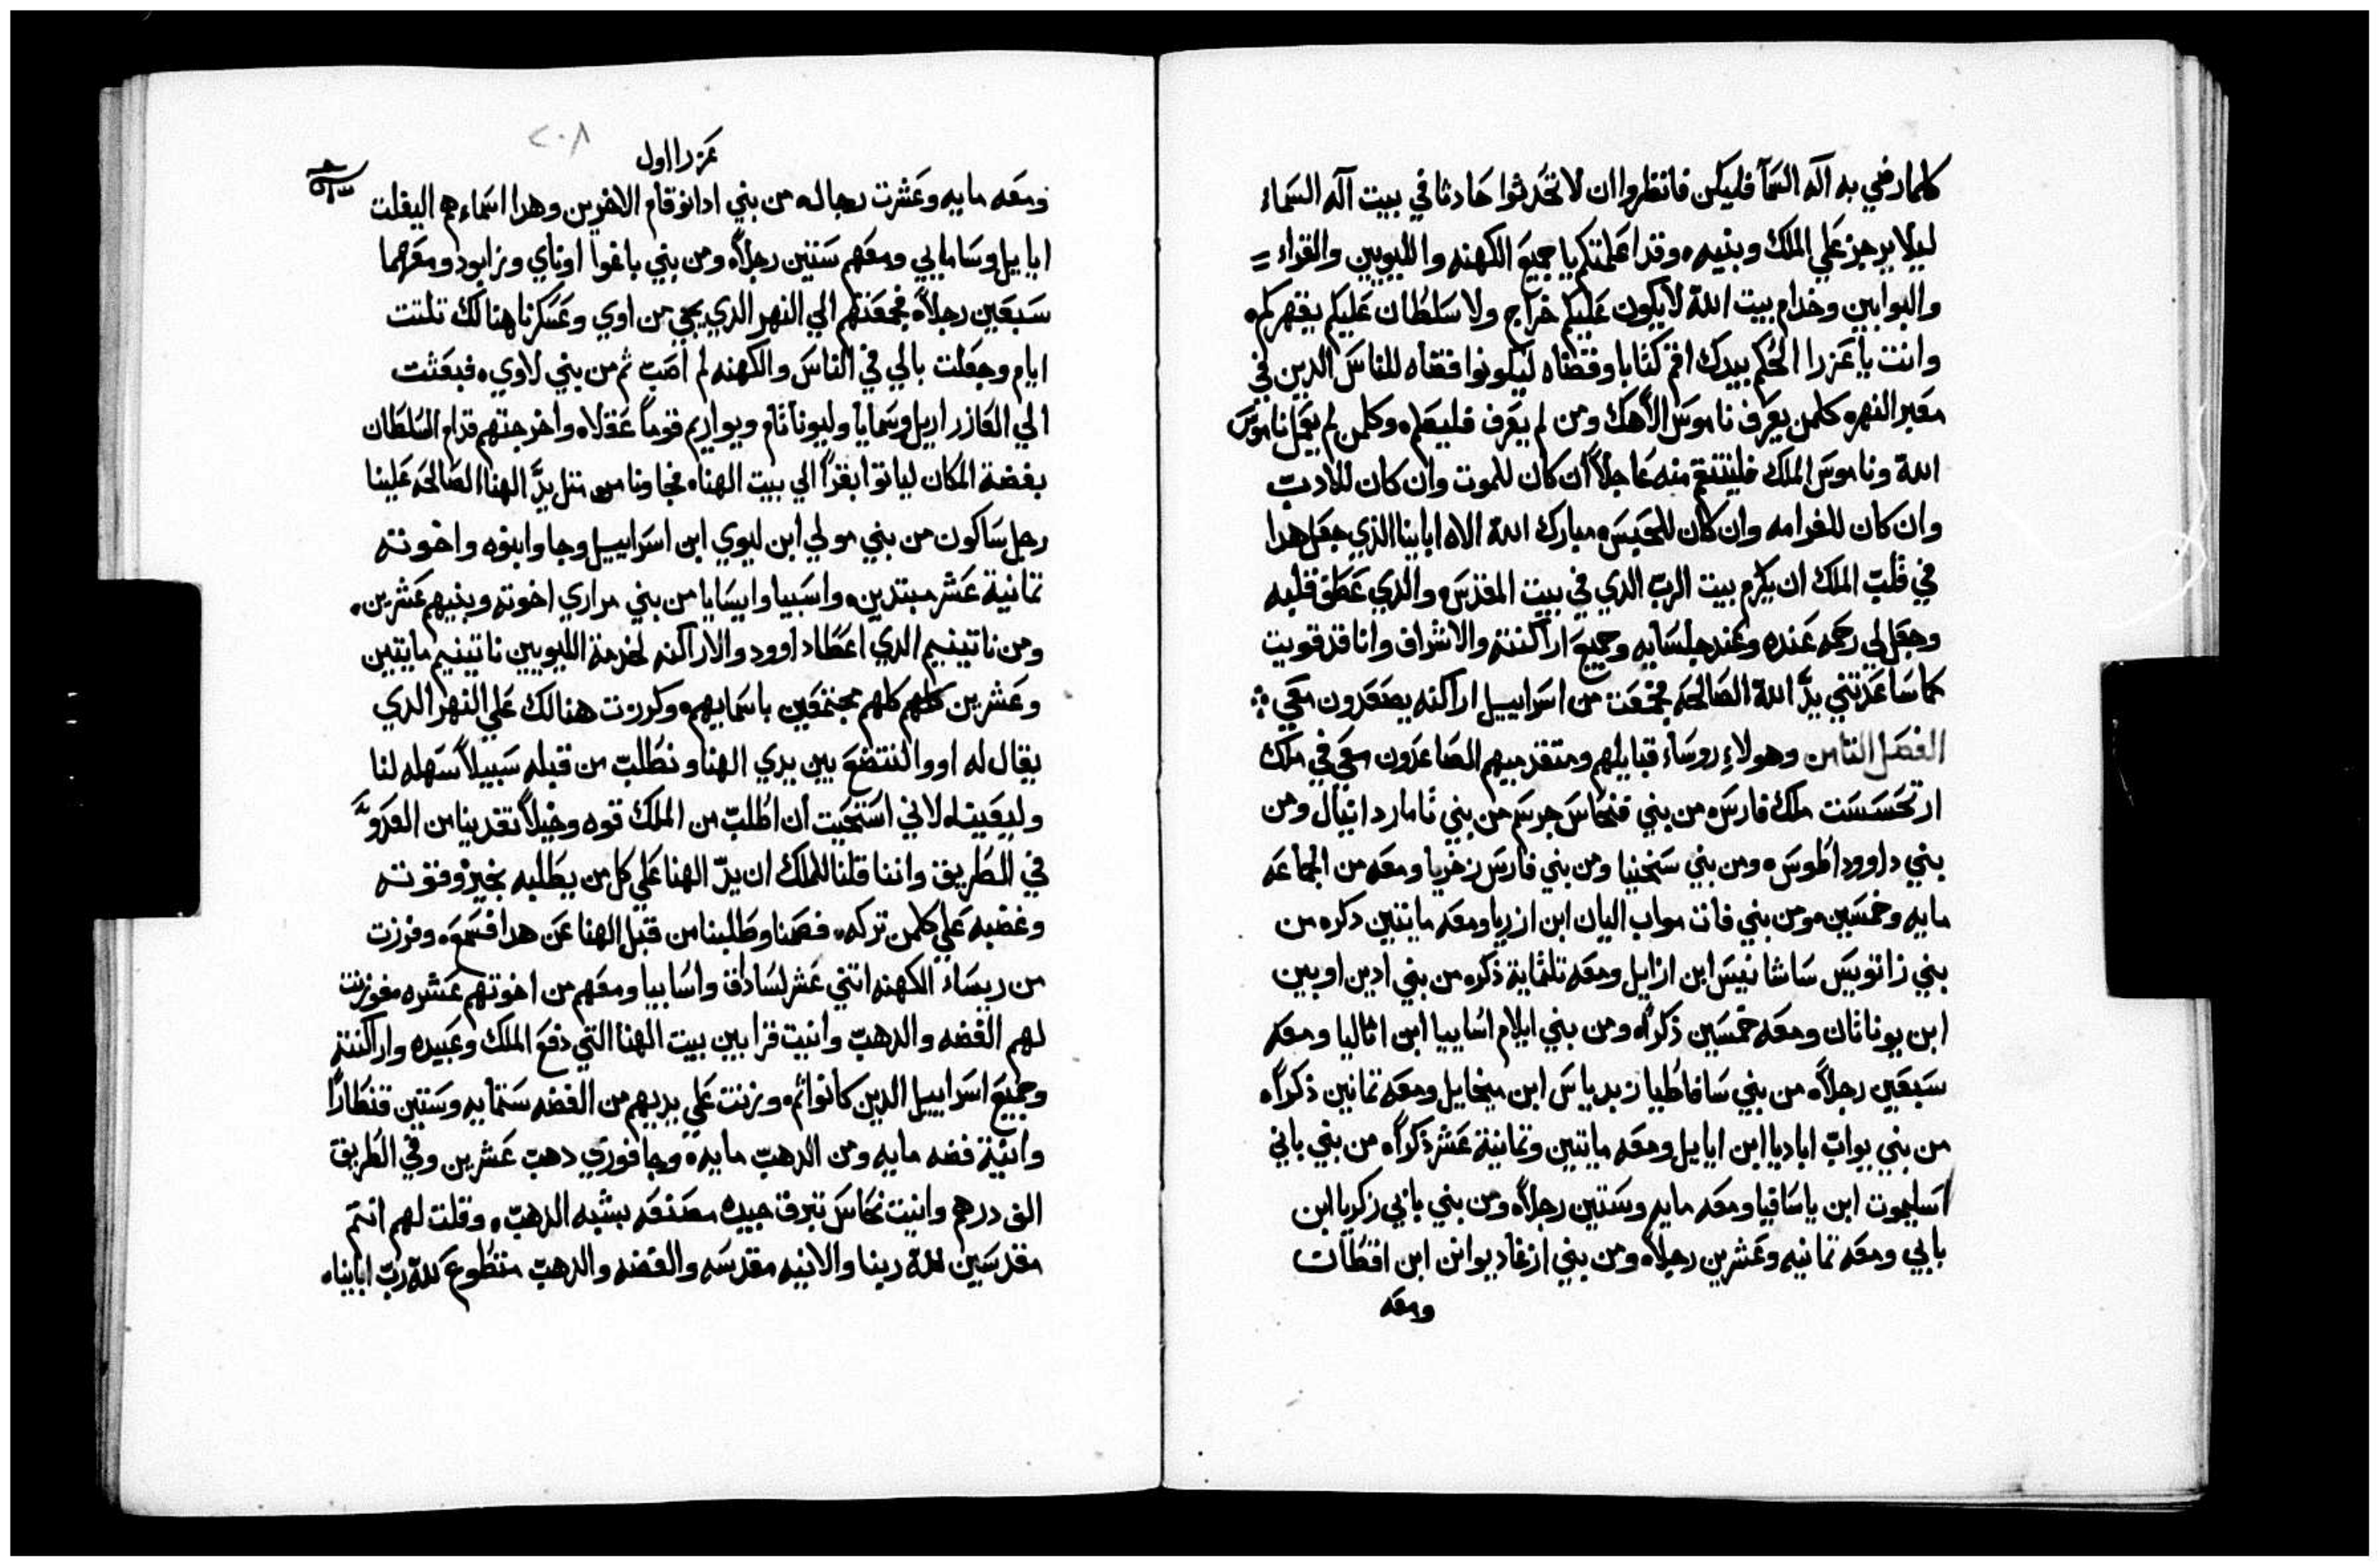 كلما رضي به اله السما فليكن فانظروا ان لا تحدثوا حادثا في بيت اله السماء
ليلا يرجز علي الملك وبنيه وقد اعلمتكم يا جميع الكهنه والليويين والقراء
والبوابين وخدام بيت الله لا يكون عليكم خراج ولا سلطان عليكم يقهركم
وانت يا عزرا الحكم بيدك اقم كتابا وقضاه ليكونوا قضاه للناس الدين في
معبر النهر وكلمن يعرف ناموس الاهك ومن لم يعرف فليعلم وكلمن لم يعمل ناموس
الله وناموس الملك فلينتقم منه عاجلاً ان كان للموت وان كان للادب
وان كان للغرامه وان كان للحبس مبارك الله الاه ابائنا الذي جعل هدا
في قلب الملك ان يكرم بيت الرب الدي في بيت المقدس والدي عطف قلبه
وجعل لي رحمه عنده وعند جلسايه وجميع اراكنته والاشراف وانا قد قويت
كما ساعدتني يد الله الصالحه فجمعت من اسراييل اراكنه يصعدون معي
الفصل الثامن وهولاء روساء قبايلهم ومتقدميهم الصاعدون معي في ملك
ارتحسست ملك فارس من بني فنحاس جرسم من بني ثامار دانيال ومن
بني داوود اطوس ومن بني سخنيا ومن بني فارس زخريا ومعه من الجماعه
مايه وخمسين ومن بني فات مواب اليان ابن ازريا ومعه مايتين دكره من
بني زاتويس ساشانيس ابن ازايل ومعه تلثماية ذكره من بني ادين اوبين
ابن يوناثان ومعه خمسين ذكراً ومن بني ايلام اسابيا ابن اثاليا ومعه
سبعين رجلاً من بني سافاطيا زبدياس ابن ميخايل ومعه تمانين ذكراً
من بني يواب اباديا ابن ايايل ومعه مايتين وتمانية عشر ذكراً من بني باني
اسليموت ابن ياسافيا ومعه مايه وستين رجلاً ومن بني بابي زكريا ابن
بابي ومعه تمانيه وعشرين رجلاً ومن بني ازغاد يوانن ابن اقطان
ومعه
٢٠٨
عزرا اول
ومعه مايه وعشرت رجاله من بني ادانوقام الاخرين وهدا اسماءهم اليفلت
ايابيل وسامايي ومعهم ستين رجلاً ومن بني باغوا اوتاي وزابود ومعهما
سبعين رجلاً فجمعتهم الي النهر الدي يجي من اوي وعسكرنا هنالك تلتت
ايام وجعلت بالي في الناس والكهنه لم اصب ثم من بني لاوي فبعثت
الي العازر اريل وسمايا وليوناثام ويواريم قوماً عقلاً واخرجتهم قدام السلطان
بفضة المكان لياتوا بغزاً الي بيت الهنا فجاونا مثل يد الهنا الصالحه علينا
رجل ساكون من بني مولي ابن ليوي ابن اسراييل وجاوا بنوه واخوته
تمانية عشر مبتدين واسبيا وايسايا من بني مراري اخوته وبنيهم عشرين
ومن ناتينيم الدي اعطا داوود والاراكنه لخدمة الليويين ناتينيم مايتين
وعشرين كلهم مجتمعين باسمايهم وكرزت هنالك علي النهر الدي
يقال له اووا لنتضع بين يدي الهنا ونطلب من قبله سبيلاً سهله لنا
لاني استحيت ان اطلب من الملك قوه وخيلاً تقدينا من العدو
في الطريق واننا قلنا للملك ان يد الهنا علي كل من يطلبه بخير وقوته
وغضبه علي كلمن تركه فصمنا وطلبنا من قبل الهنا عن هدا فسمع وفرزت
من ريساء الكهنه اتني عشر لسادق واسابيا ومعهم من اخوتهم عشره فوزنت
لهم الفضه والدهب وانيت قرابين بيت الهنا التي دفع الملك وعبيده واراكنته
وجميع اسراييل الدين كانوا ثم وزنت علي يديهم من الفضه ستمايه وستين قنطاراً
وانية فضه مايه ومن الدهب مايه وجافوري دهب عشرين وفي الطريق
الف درهم وانيت نحاس تبرق جيده مصنفه بشبه الدهب وقلت لهم انتم
مقدسين لله ربنا والانيه مقدسه والفضه والدهب متطوع لله رب ابايناه